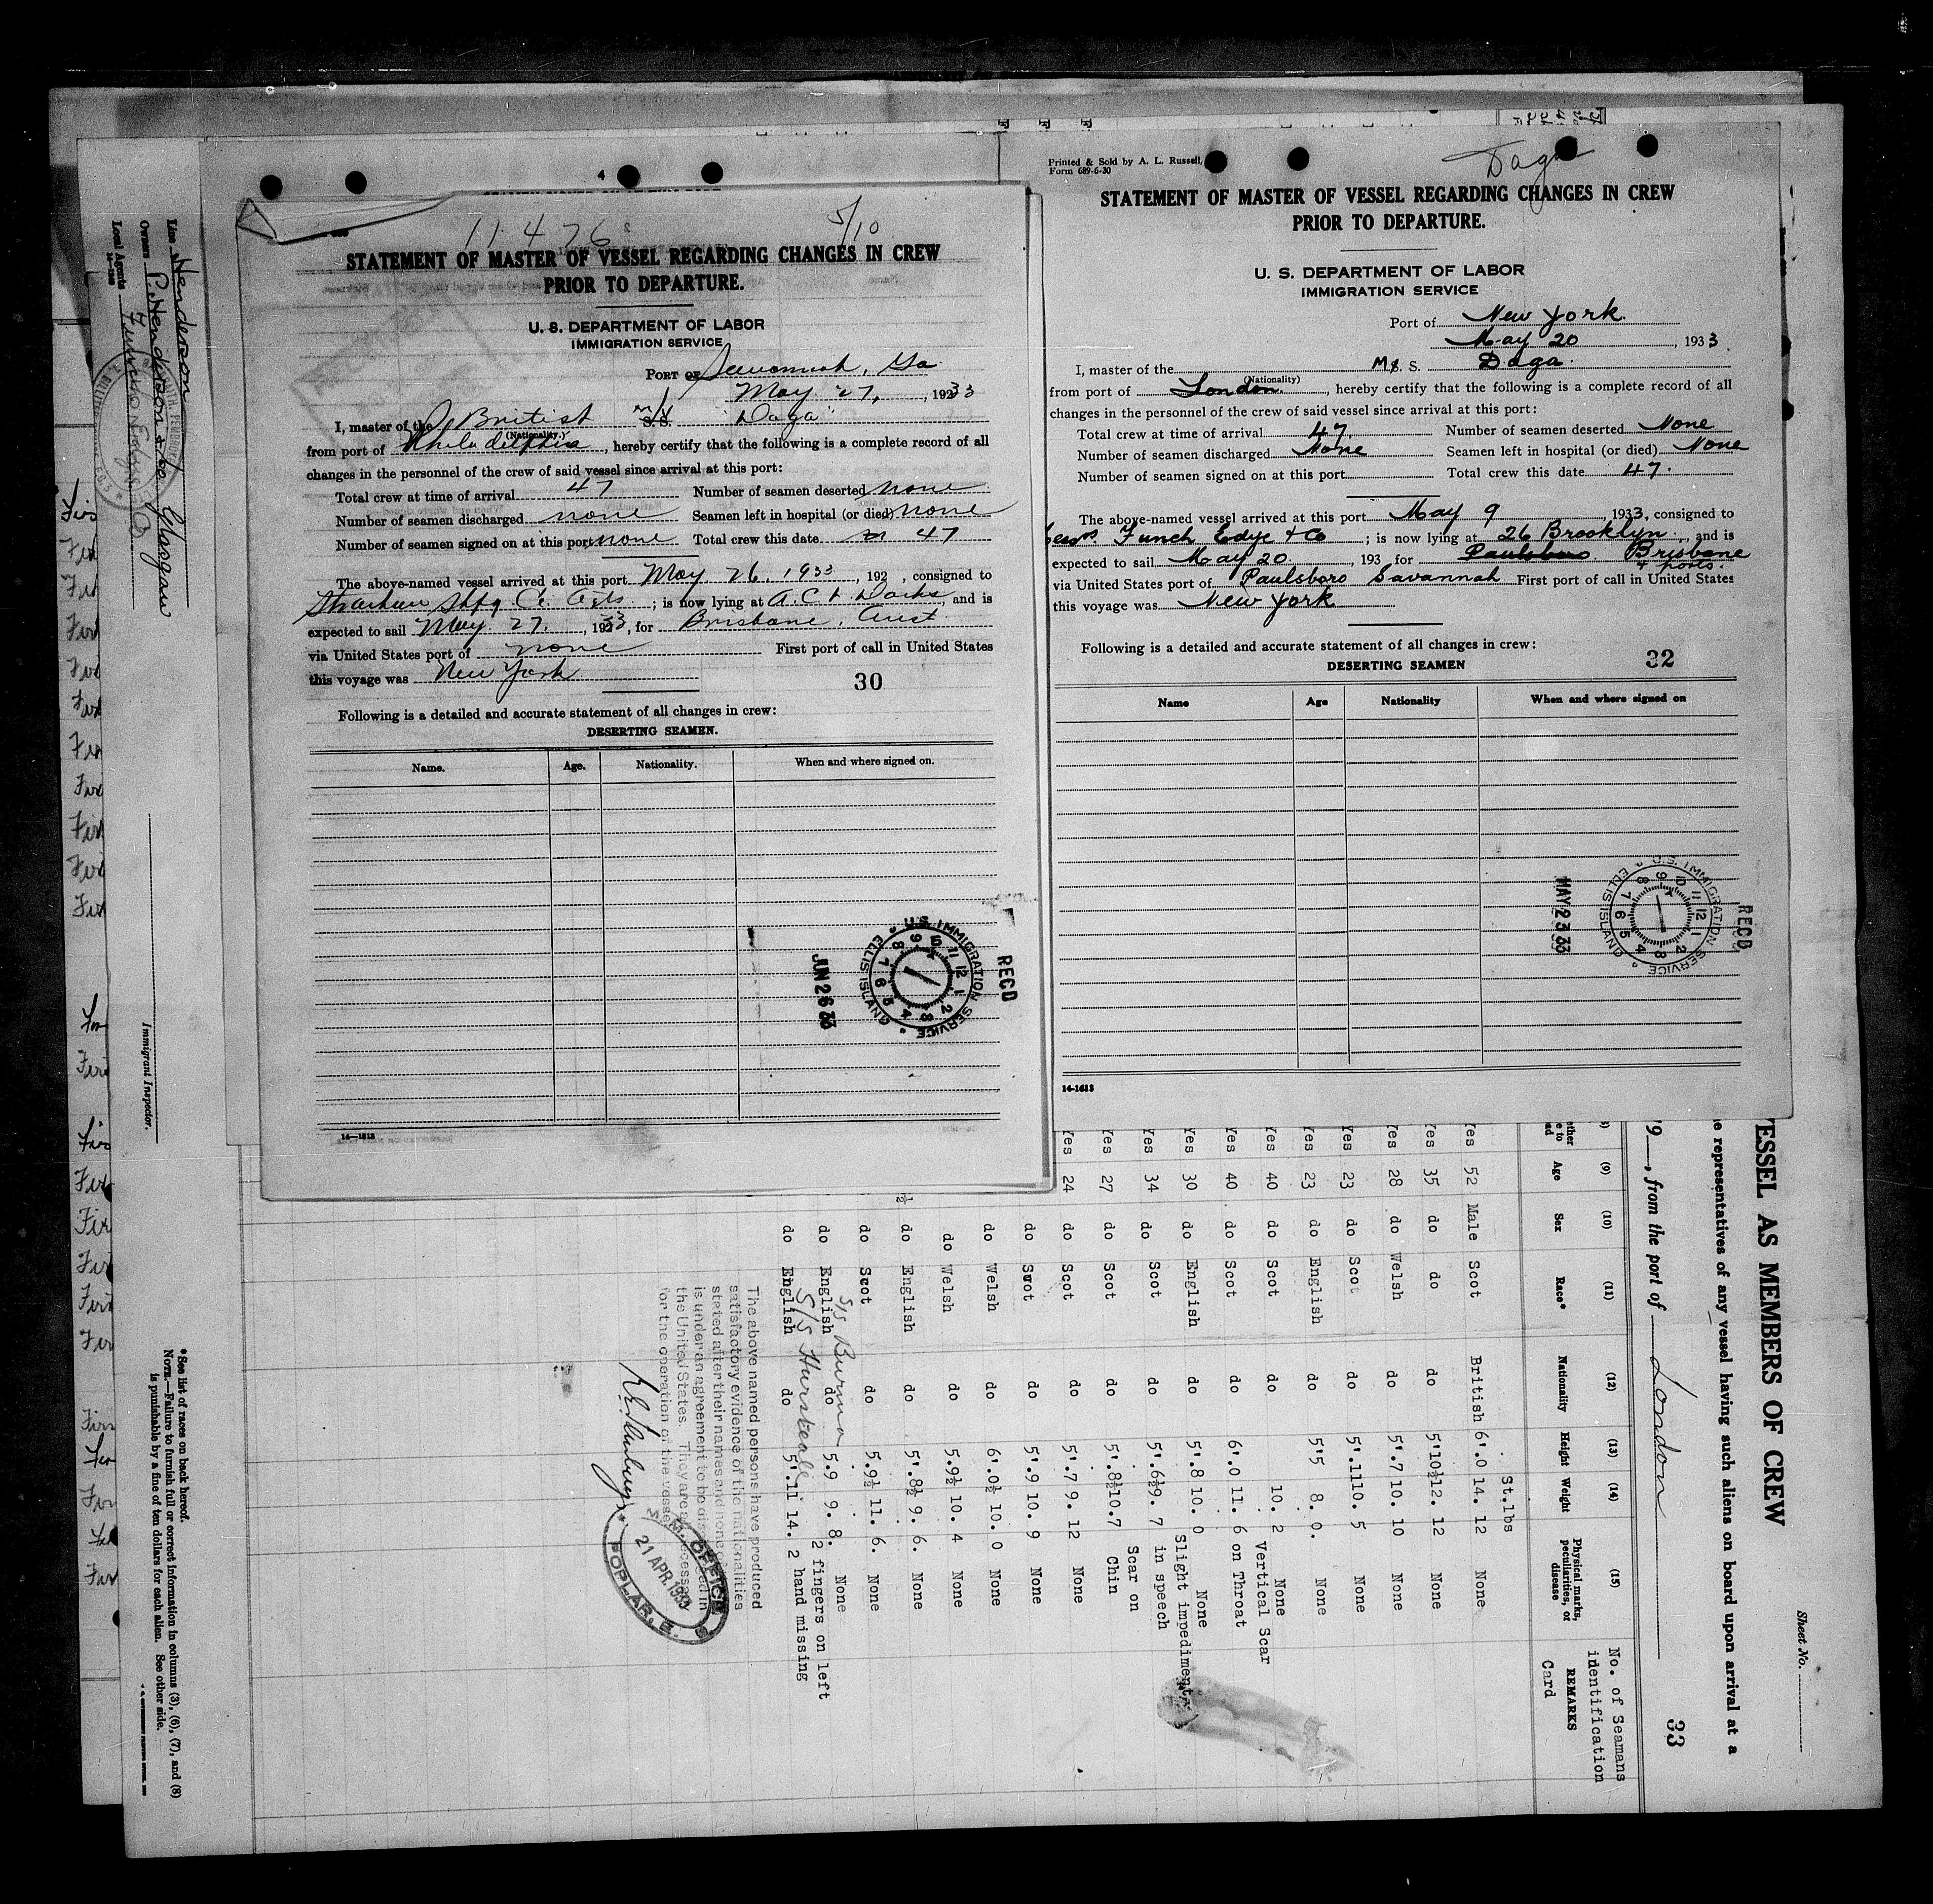 4
11476
5/10
STATEMENT OF MASTER OF VESSEL REGARDING CHANGES IN CREW
PRIOR TO DEPARTURE.
U. S. DEPARTMENT OF LABOR
IMMIGRATION SERVICE
PORT OF Savannah, Ga
May 27, 1933
I, master of the British M/V S.S. "Daga"
(Nationality.)
from port of Philadelphia, hereby certify that the following is a complete record of all
changes in the personnel of the crew of said vessel since arrival at this port:
Total crew at time of arrival 47 Number of seamen deserted none
Number of seamen discharged none Seamen left in hospital (or died) none
Number of seamen signed on at this port none Total crew this date 47
The above-named vessel arrived at this port May 26. 1933, 192 , consigned to
Strachan Shpg. Co. Agts ; is now lying at A.C.L. Docks, and is
expected to sail May 27, 1933, for Brisbane, Aust
via United States port of none First port of call in United States
this voyage was New York
30
Following is a detailed and accurate statement of all changes in crew:
DESERTING SEAMEN.
Name. Age. Nationality. When and where signed on.
U.S. IMMIGRATION SERVICE
ELLIS ISLAND
RECD
JUN 26 33
14—1613
Printed & Sold by A. L. Russell,
Form 689-6-30
Daga
STATEMENT OF MASTER OF VESSEL REGARDING CHANGES IN CREW
PRIOR TO DEPARTURE.
U. S. DEPARTMENT OF LABOR
IMMIGRATION SERVICE
Port of New York
May 20, 1933
I, master of the M. S. Daga.
(Nationality)
from port of London, hereby certify that the following is a complete record of all
changes in the personnel of the crew of said vessel since arrival at this port:
Total crew at time of arrival 47. Number of seamen deserted None
Number of seamen discharged None Seamen left in hospital (or died) None
Number of seamen signed on at this port Total crew this date 47.
The above-named vessel arrived at this port May 9, 1933, consigned to
Funch Edye & Co ; is now lying at 26 Brooklyn, and is
expected to sail May 20, 193 for Paulsboro. Brisbane
& ports.
via United States port of Paulsboro Savannah First port of call in United States
this voyage was New York
Following is a detailed and accurate statement of all changes in crew:
DESERTING SEAMEN
32
Name Age Nationality When and where signed on
U.S. IMMIGRATION SERVICE
ELLIS ISLAND
RECD
MAY 23 33
14-1613
Sheet No.
ESSEL AS MEMBERS OF CREW
e representatives of any vessel having such aliens on board upon arrival at a
19 , from the port of London
33
(9) (10) (11) (12) (13) (14) (15)
Age Sex Race* Nationality Height Weight Physical marks, peculiarities, or disease REMARKS
No. of Seamans identification Card
St.lbs
Yes 52 Male Scot British 6'.0 14. 12 None
Yes 35 do do do 5'10½ 12. 12 None
Yes 28 do Welsh do 5'.7 10. 10 None
Yes 23 do Scot do 5'.11 10. 5 None
Yes 23 do English do 5'5 8. 0. None
Yes 40 do Scot do 10. 2 None
Yes 40 do Scot do 6'.0 11. 6 Vertical Scar on Throat
Yes 30 do English do 5'.8 10. 0 None
Yes 34 do Scot do 5'.6½ 9. 7 Slight impediment in speech
Yes 27 do Scot do 5'.8½ 10.7 Scar on Chin
Yes 24 do Scot do 5'.7 9. 12 None
do Scot do 5'.9 10. 9 None
do Welsh do 6'.0½ 10. 0 None
do Welsh do 5.9½ 10. 4 None
do English do 5'.8½ 9. 6. None
do Scot do 5.9½ 11. 6. None
S/S Burma
do English do 5.9 9. 8. None
do English do 5'.11 14. 2 2 fingers on left hand missing
The above named persons have produced
satisfactory evidence of the nationalities
stated after their names and none of
is under an agreement to be discharged in
the United States. They are necessary
for the operation of the vessel
M.M. OFFICE
21 APR. 1933
POPLAR, E.
Line Henderson
Owners P. Henderson & Co Glasgow
Local Agents Funch Edye & Co
Immigrant Inspector.
*See list of races on back hereof.
NOTE.—Failure to furnish full or correct information in columns (3), (6), (7), and (8)
is punishable by a fine of ten dollars for each alien. See other side.